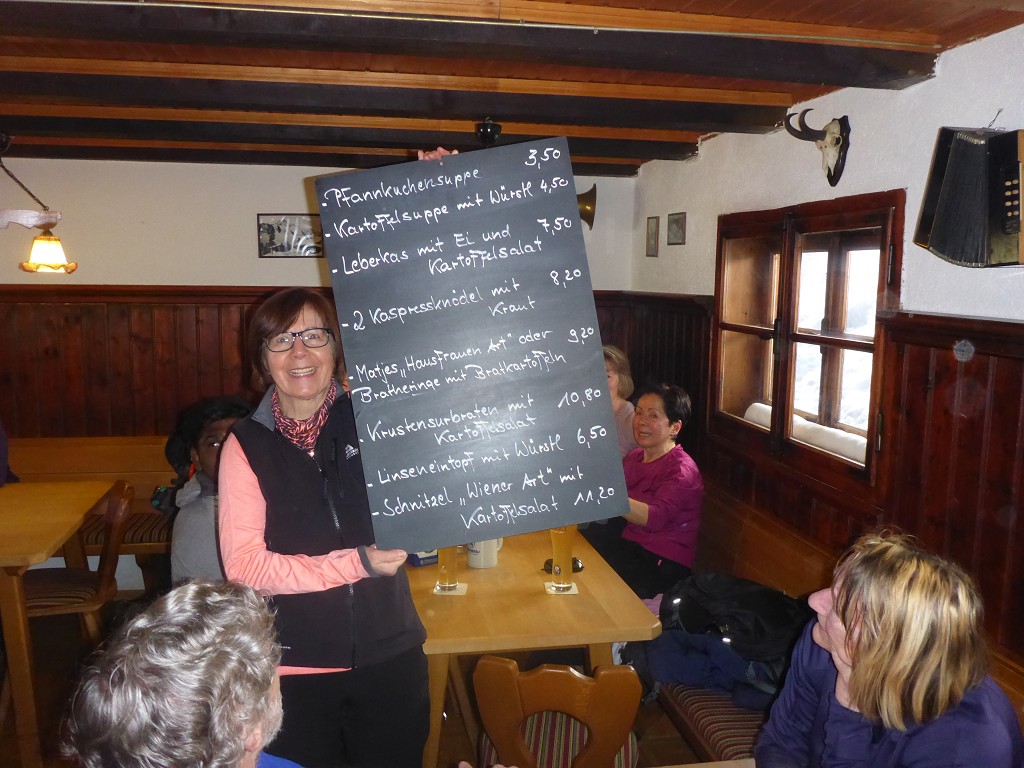 - Pfannkuchensuppe 3,50
- Kartoffelsuppe mit Würstl 4,50
- Leberkas mit Ei und 7,50
Kartoffelsalat
- 2 Kaspressknödel mit 8,20
Kraut
- Matjes „Hausfrauen Art" oder 9,20
Bratheringe mit Bratkartoffeln
- Krustensurbraten mit 10,80
Kartoffelsalat
- Linseneintopf mit Würstl 6,50
- Schnitzel „Wiener Art" mit
Kartoffelsalat 11,20